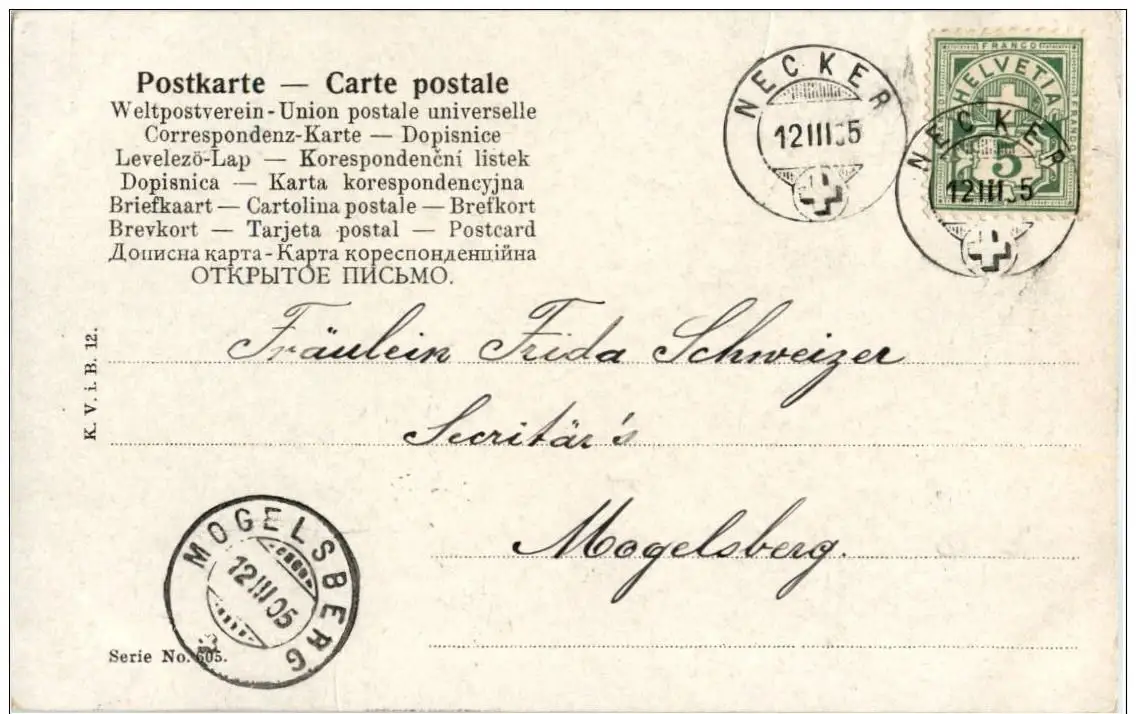 Postkarte — Carte postale
Weltpostverein - Union postale universelle
Correspondenz-Karte — Dopisnice
Levelezö-Lap — Korespondenční listek
Dopisnica — Karta korespondencyjna
Briefkaart — Cartolina postale — Brefkort
Brevkort — Tarjeta postal — Postcard
Дописна карта - Карта кореспонденційна
ОТКРЫТОЕ ПИСЬМО.
NECKER
12 III 05
FRANCO
HELVETIA
FRANCO
5
NECKER
12 III 05
Fräulein Frida Schweizer
Secritär's
Mogelsberg.
K. V. i. B. 12.
MOGELSBERG
12 III 05
Serie No. 605.